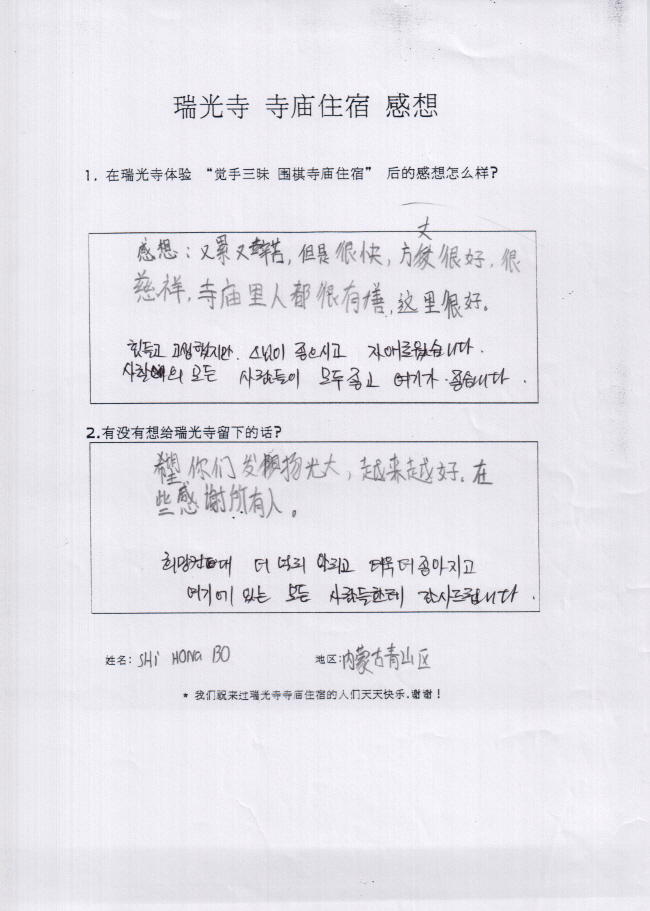 瑞光寺 寺庙住宿 感想
1. 在瑞光寺体验 “觉手三昧 围棋寺庙住宿” 后的感想怎么样?
丈
感想：又累又辛苦，但是很快，方 很好，很
慈祥，寺庙里人都很有 ，这里很好。
힘들고 고생했지만. 스님이 좋으시고 자애로웠습니다.
사찰에의 모든 사람들이 모두 좋고 여기가 좋습니다.
2.有没有想给瑞光寺留下的话?
希望你们发 扬光大，越来越好。在
些感谢所有人。
더 널리 알리고 더욱 더 좋아지고
여기에 있는 모든 사람들한테 감사드립니다.
姓名: SHi HONG BO 地区:内蒙古青山区
* 我们祝来过瑞光寺寺庙住宿的人们天天快乐.谢谢！